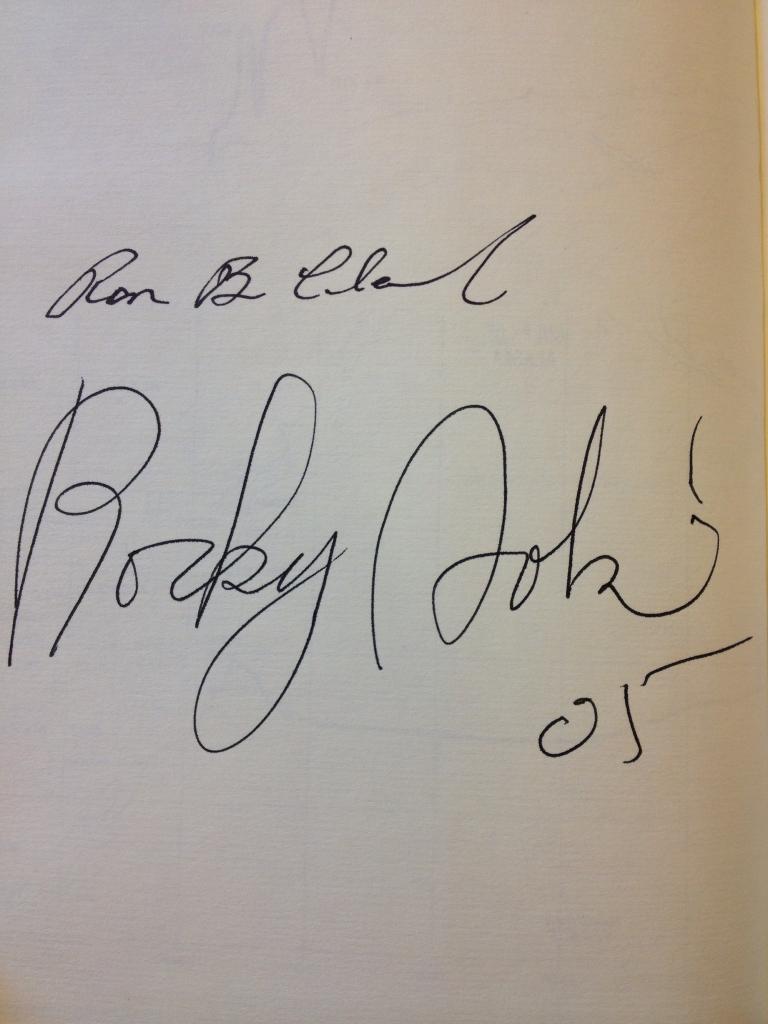 Ron B Cla
Rocky Aoki
05